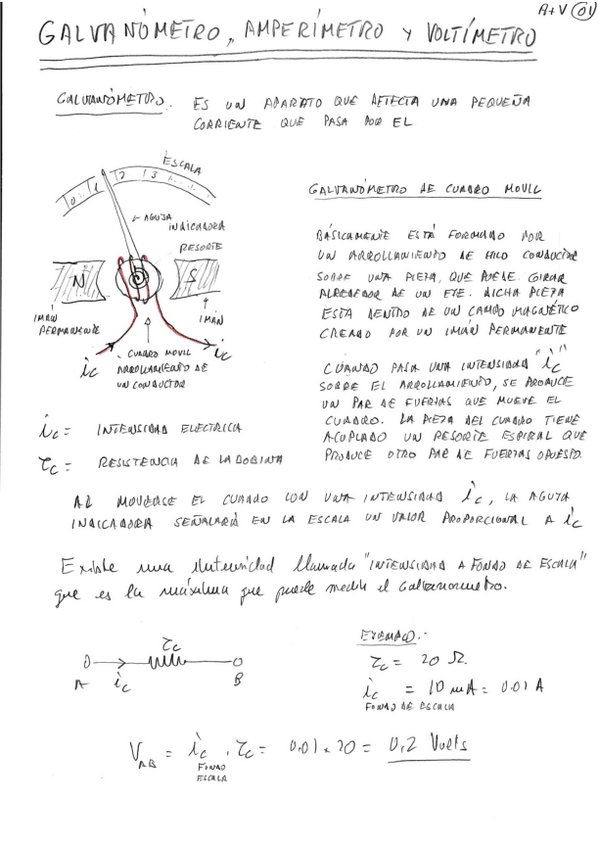 A+V 01
GALVANÓMETRO, AMPERÍMETRO Y VOLTÍMETRO
GALVANÓMETRO. ES UN APARATO QUE DETECTA UNA PEQUEÑA
CORRIENTE QUE PASA POR EL
ESCALA
0 1 2 3
AGUJA
INDICADORA
RESORTE
N S
IMÁN
PERMANENTE
IMÁN
CUADRO MOVIL
ARROLLAMIENTO DE
UN CONDUCTOR
ic
ic
GALVANÓMETRO DE CUADRO MOVIL
BÁSICAMENTE ESTÁ FORMADO POR
UN ARROLLAMIENTO DE HILO CONDUCTOR
SOBRE UNA PIEZA, QUE PUEDE GIRAR
ALREDEDOR DE UN EJE. DICHA PIEZA
ESTA DENTRO DE UN CAMPO MAGNÉTICO
CREADO POR UN IMÁN PERMANENTE
CUANDO PASA UNA INTENSIDAD "ic"
SOBRE EL ARROLLAMIENTO, SE PRODUCE
UN PAR DE FUERZAS QUE MUEVE EL
CUADRO. LA PIEZA DEL CUADRO TIENE
ACOPLADO UN RESORTE ESPIRAL QUE
PRODUCE OTRO PAR DE FUERZAS OPUESTO.
ic = INTENSIDAD ELECTRICA
rc = RESISTENCIA DE LA BOBINA
AL MOVERSE EL CUADRO CON UNA INTENSIDAD ic, LA AGUJA
INDICADORA SEÑALARÁ EN LA ESCALA UN VALOR PROPORCIONAL A ic
Existe una intensidad llamada "INTENSIDAD A FONDO DE ESCALA"
que es la máxima que puede medir el Galvanometro.
rc
A ic B
EJEMPLO:
rc = 20 Ω
ic = 10 mA = 0.01 A
FONDO DE ESCALA
VAB = ic . rc = 0,01 x 20 = 0,2 Volts
FONDO
ESCALA